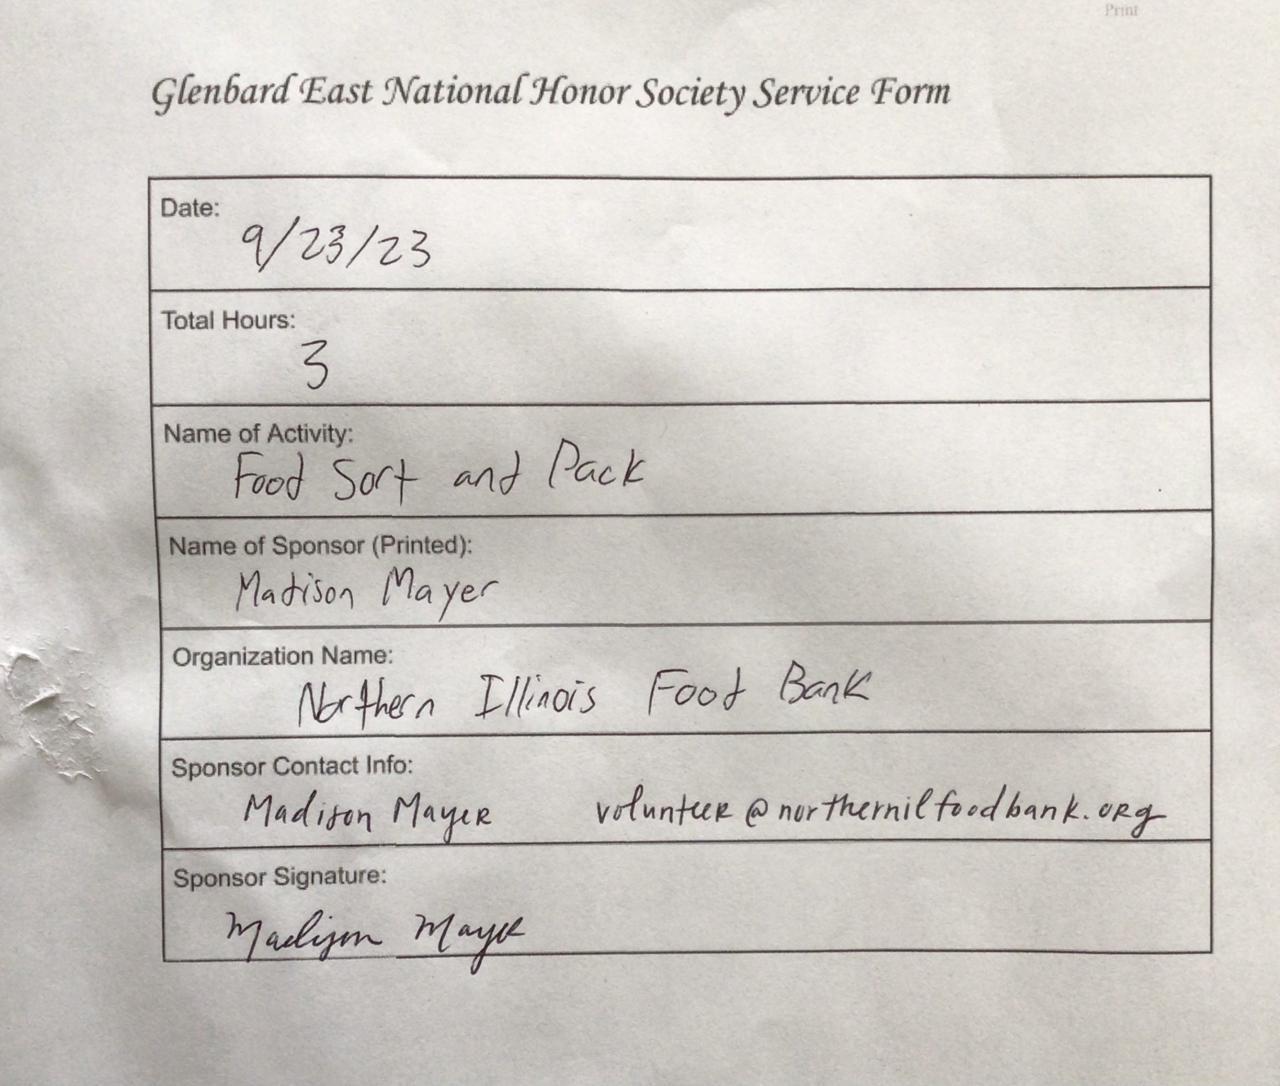 Print
Glenbard East National Honor Society Service Form
Date:
9/23/23
Total Hours:
3
Name of Activity:
Food Sort and Pack
Name of Sponsor (Printed):
Madison Mayer
Organization Name:
Northern Illinois Food Bank
Sponsor Contact Info:
Madison Mayer volunteer@northernilfoodbank.org
Sponsor Signature:
Madison Mayer